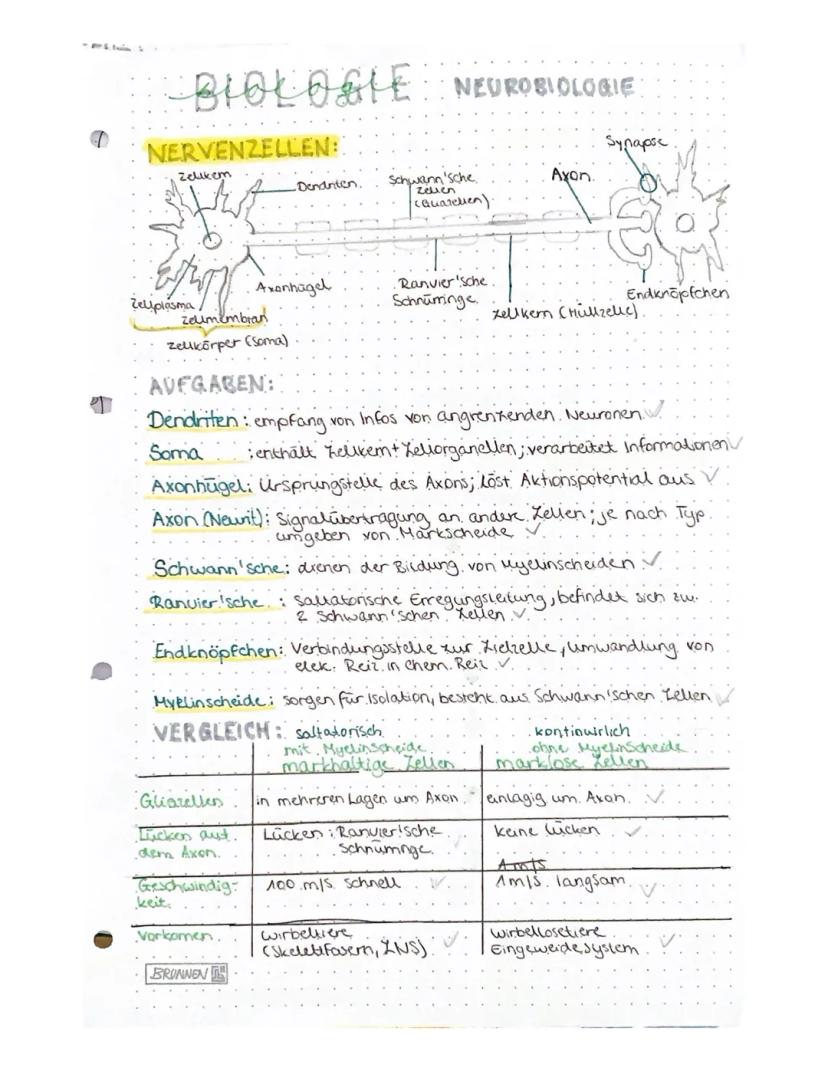 BIOLOGIE NEUROBIOLOGIE
NERVENZELLEN:
Synapse
Zellkern
Dendriten
Schwann'sche
Zellen
(Gliazellen)
Axon
Axonhügel
Ranvier'sche
Schnürringe
Endknöpfchen
Zellplasma
Zellmembran
Zellkern (Hüllzelle)
Zellkörper (Soma)
AUFGABEN:
Dendriten: empfang von Infos von angrenzenden Neuronen ✓
Soma : enthält Zellkern + Zellorganellen; verarbeitet Informationen ✓
Axonhügel: Ursprungstelle des Axons; löst Aktionspotential aus ✓
Axon (Neurit): Signalübertragung an andere Zellen; je nach Typ
umgeben von Markscheide ✓
Schwann'sche: dienen der Bildung von Myelinscheiden ✓
Ranvier'sche : Saltatorische Erregungsleitung, befindet sich zw.
2 Schwann'schen Zellen ✓
Endknöpfchen: Verbindungsstelle zur Zielzelle, Umwandlung von
elek. Reiz in chem. Reiz ✓
Myelinscheide: sorgen für Isolation, besteht aus Schwann'schen Zellen ✓
VERGLEICH: saltatorisch kontinuirlich
mit Myelinscheide ohne Myelinscheide
markhaltige Zellen marklose Zellen
Gliazellen in mehreren Lagen um Axon einlagig um Axon ✓
Lücken auf Lücken: Ranvier'sche keine Lücken ✓
dem Axon Schnürringe
1 m/s
Geschwindig- 100 m/s schnell ✓ 1 m/s langsam ✓
keit
Vorkomen Wirbeltiere wirbellosetiere
(Skelettfasern, ZNS) ✓ Eingeweidesystem ✓
BRUNNEN